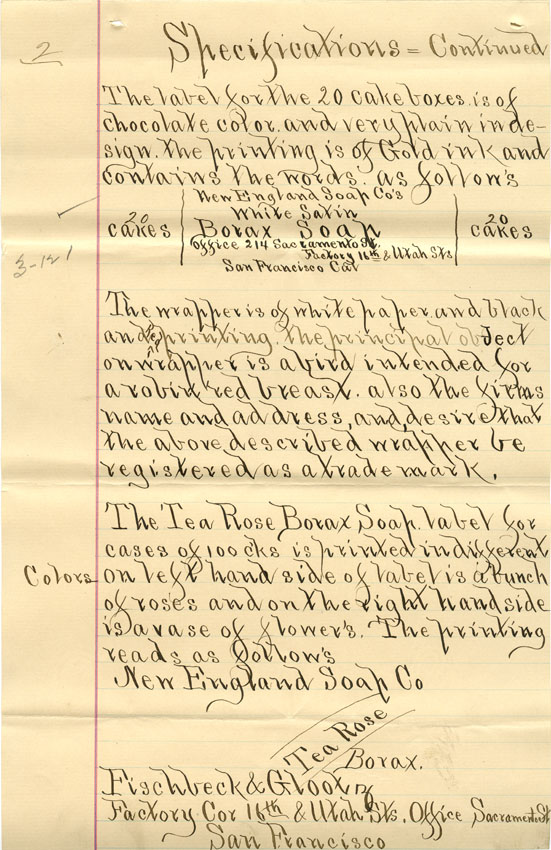 2
Specifications = Continued
The label for the 20 cake boxes. is of
chocolate color. and very plain in de-
sign. the printing is of Gold ink and
contains the words. as follow's
New England Soap Co's
White Satin
20 cakes Borax Soap 20 cakes
Office 214 Sacramento St.
Factory 16th & Utah Sts
San Francisco Cal
3-12 1
The wrapper is of white paper. and black
and red printing. the principal object
on wrapper is a bird intended for
a robin red breast. also the firms
name and address, and, desire that
the above described wrapper be
registered as a trade mark.
The Tea Rose Borax Soap. label for
cases of 100 cks is printed in different
Colors on left hand side of label is a bunch
of roses and on the right hand side
is a vase of flower's. The printing
reads as follow's
New England Soap Co
Tea Rose
Borax.
Fischbeck & Glootz
Factory Cor 16th & Utah Sts. Office Sacramento St
San Francisco